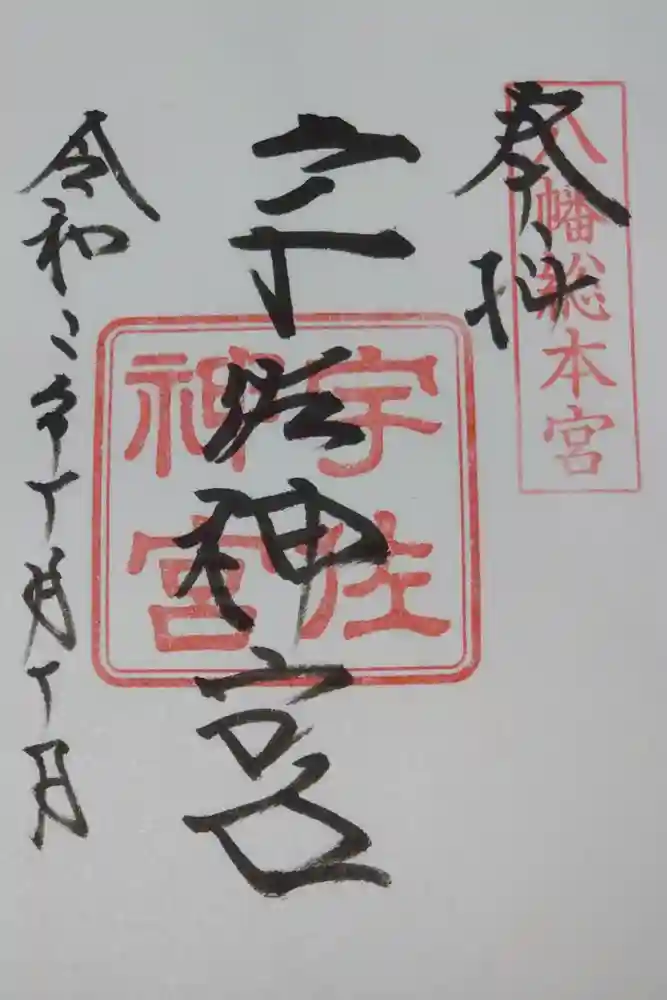 八幡総本宮
奉拝
宇佐神宮
宇佐
神宮
令和二年十一月十一日